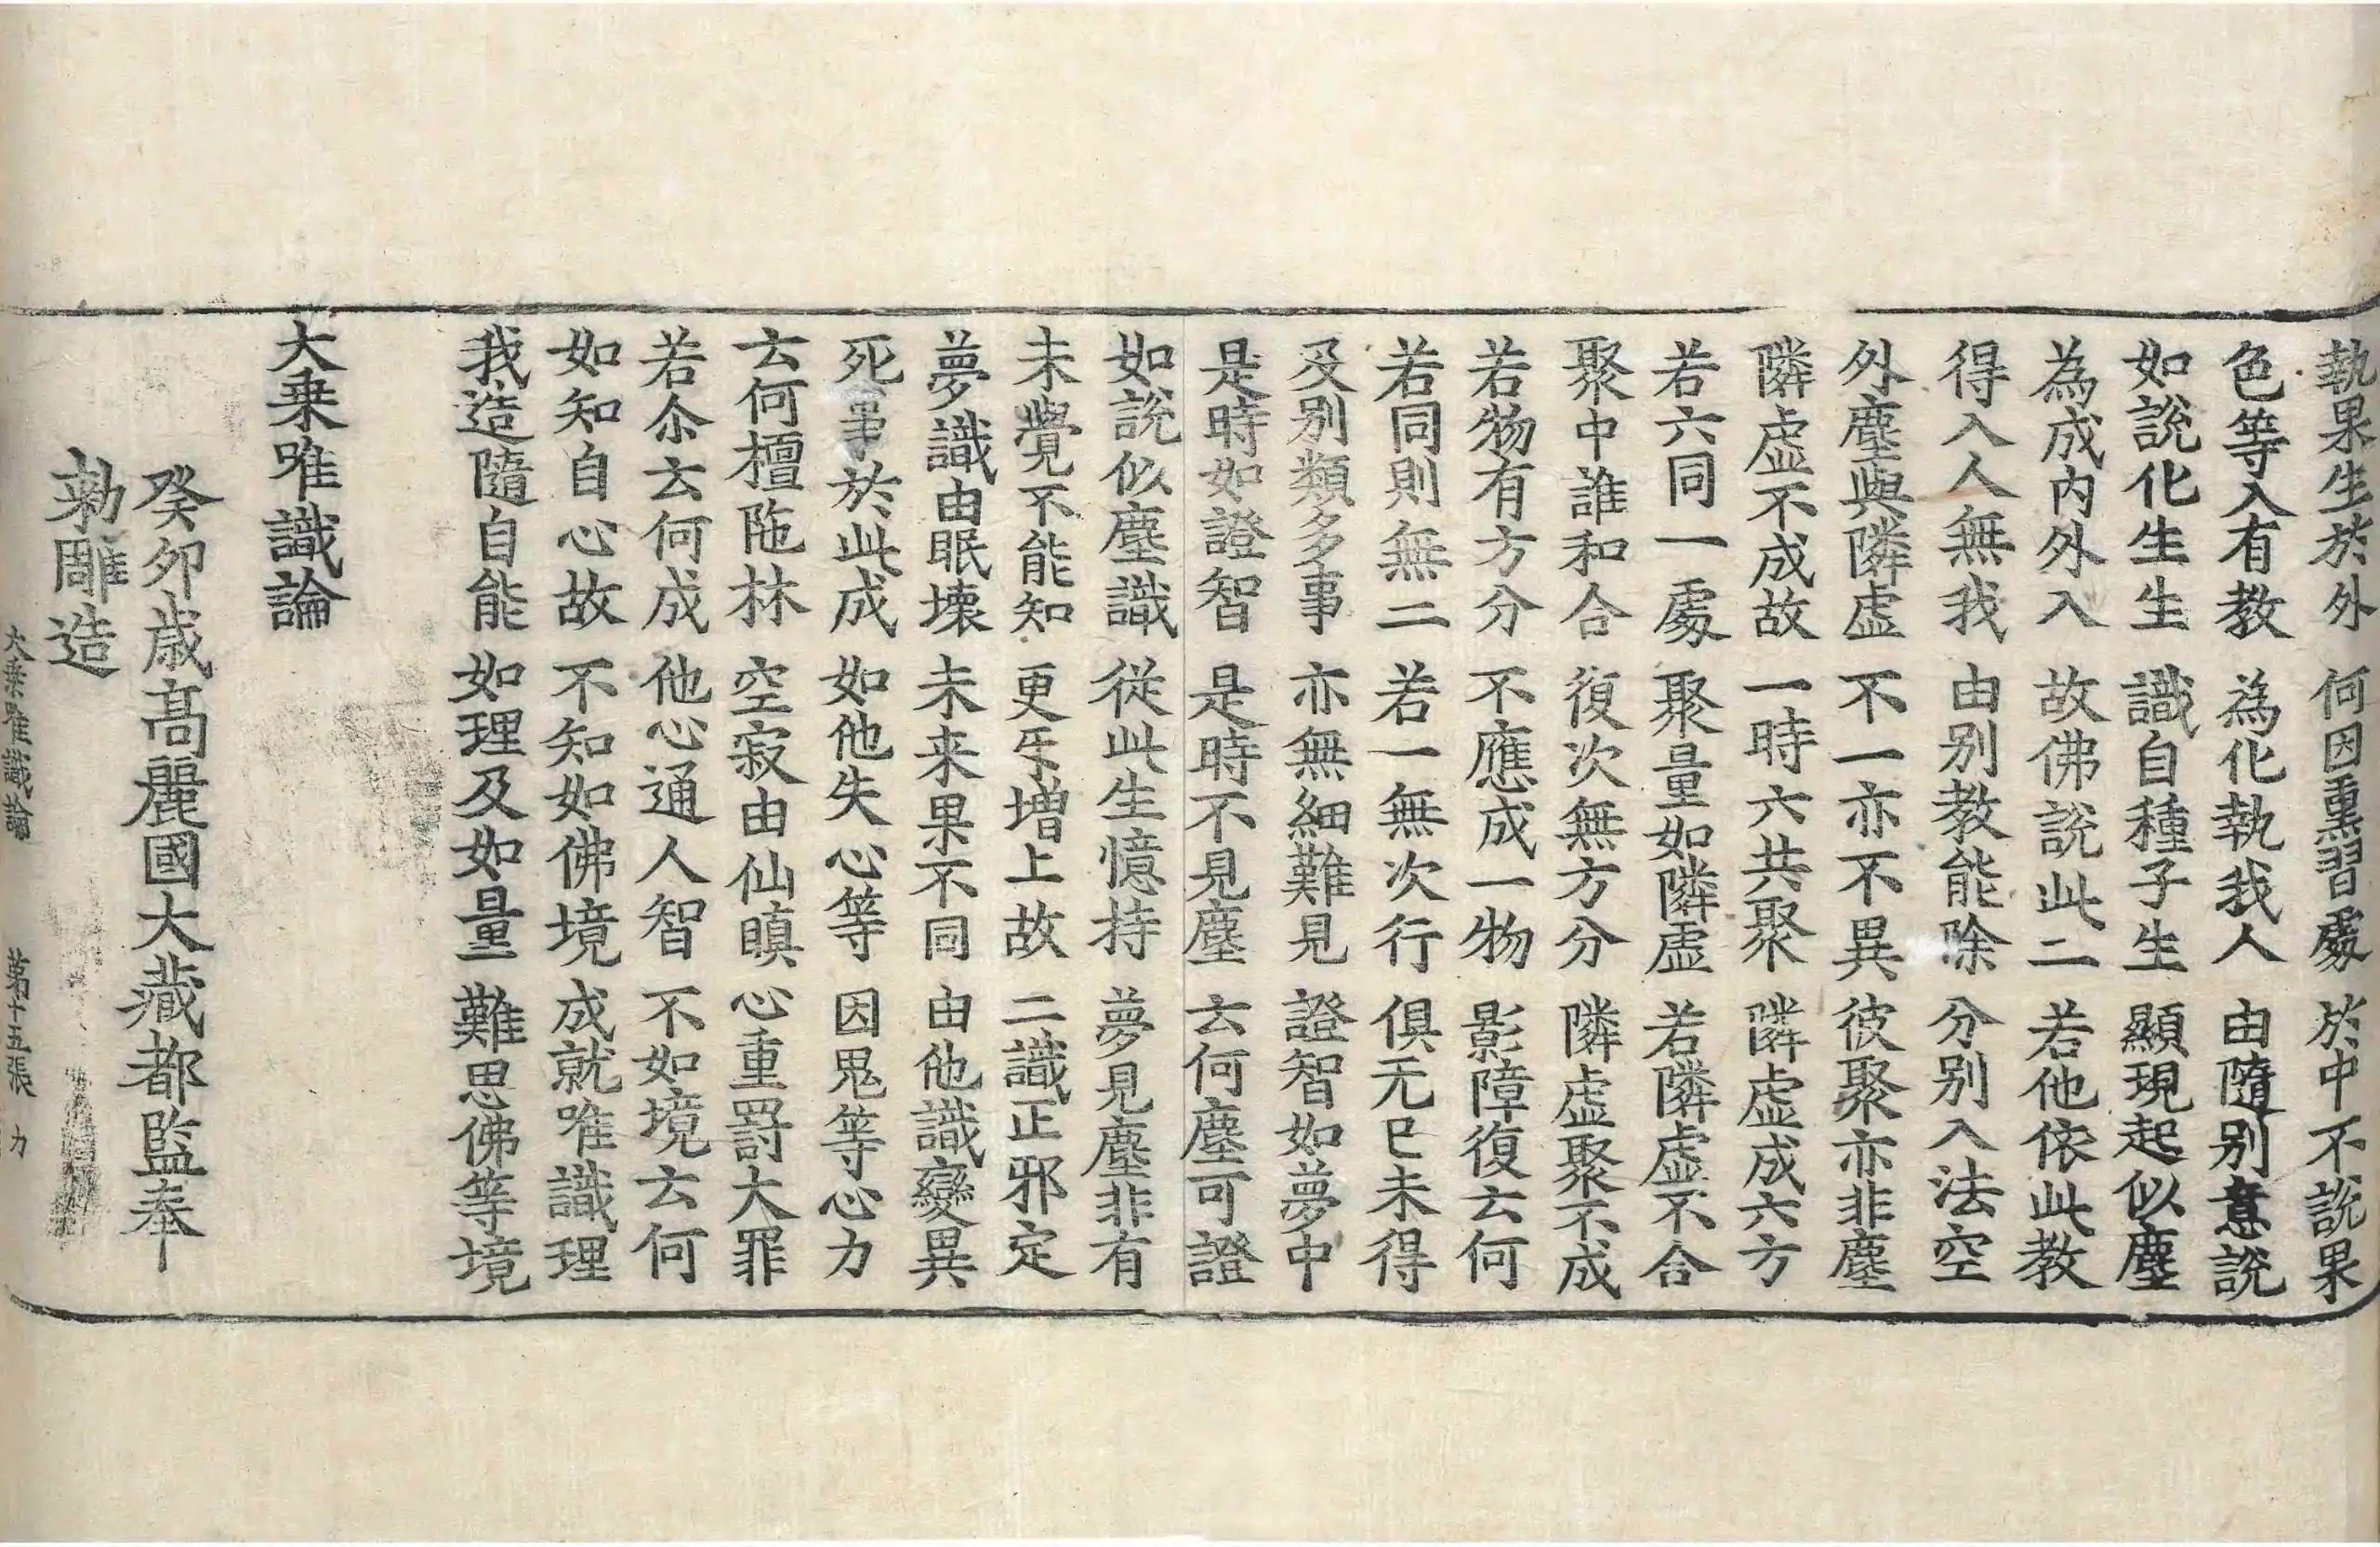 執果生於外 何因熏習處 於中不說果
色等入有教 為化執我人 由隨別意說
如說化生生 識自種子生 顯現起似塵
為成內外入 故佛說此二 若他依此教
得入人無我 由別教能除 分別入法空
外塵與隣虛 不一亦不異 彼聚亦非塵
隣虛不成故 一時六共聚 隣虛成六方
若六同一處 聚量如隣虛 若隣虛不合
聚中誰和合 復次無方分 隣虛聚不成
若物有方分 不應成一物 影障復云何
若同則無二 若一無次行 俱无已未得
及別類多事 亦無細難見 證智如夢中
是時如證智 是時不見塵 云何塵可證
如說似塵識 從此生憶持 夢見塵非有
未覺不能知 更互增上故 二識正邪定
夢識由眠壞 未来果不同 由他識變異
死事於此成 如他失心等 因鬼等心力
云何檀陁林 空寂由仙瞋 心重罸大罪
若尒云何成 他心通人智 不如境云何
如知自心故 不知如佛境 成就唯識理
我造隨自能 如理及如量 難思佛等境
大乗唯識論
癸夘歲高麗國大藏都監奉
勑雕造
大乗唯識論 第十五張 力